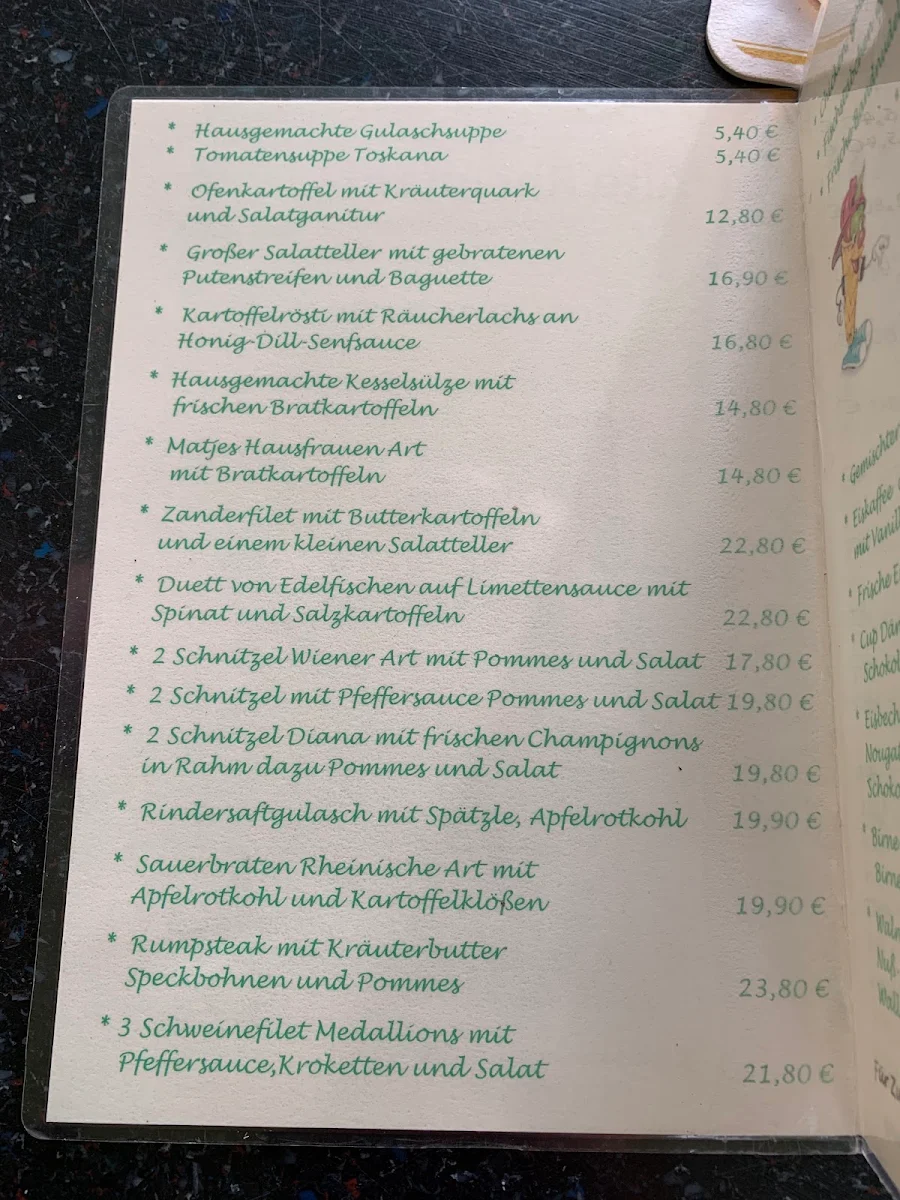 * Hausgemachte Gulaschsuppe 5,40 €
* Tomatensuppe Toskana 5,40 €
* Ofenkartoffel mit Kräuterquark
und Salatganitur 12,80 €
* Großer Salatteller mit gebratenen
Putenstreifen und Baguette 16,90 €
* Kartoffelrösti mit Räucherlachs an
Honig-Dill-Senfsauce 16,80 €
* Hausgemachte Kesselsülze mit
frischen Bratkartoffeln 14,80 €
* Matjes Hausfrauen Art
mit Bratkartoffeln 14,80 €
* Zanderfilet mit Butterkartoffeln
und einem kleinen Salatteller 22,80 €
* Duett von Edelfischen auf Limettensauce mit
Spinat und Salzkartoffeln 22,80 €
* 2 Schnitzel Wiener Art mit Pommes und Salat 17,80 €
* 2 Schnitzel mit Pfeffersauce Pommes und Salat 19,80 €
* 2 Schnitzel Diana mit frischen Champignons
in Rahm dazu Pommes und Salat 19,80 €
* Rindersaftgulasch mit Spätzle, Apfelrotkohl 19,90 €
* Sauerbraten Rheinische Art mit
Apfelrotkohl und Kartoffelklößen 19,90 €
* Rumpsteak mit Kräuterbutter
Speckbohnen und Pommes 23,80 €
* 3 Schweinefilet Medallions mit
Pfeffersauce,Kroketten und Salat 21,80 €
* Gemischter
* Eiskaffee
mit Vanill
* Frische E
* Cup Dän
Schokol
* Eisbech
Nougat
Schoko
* Birne
Birne
* Waln
Nuß
Waln
Für Zu